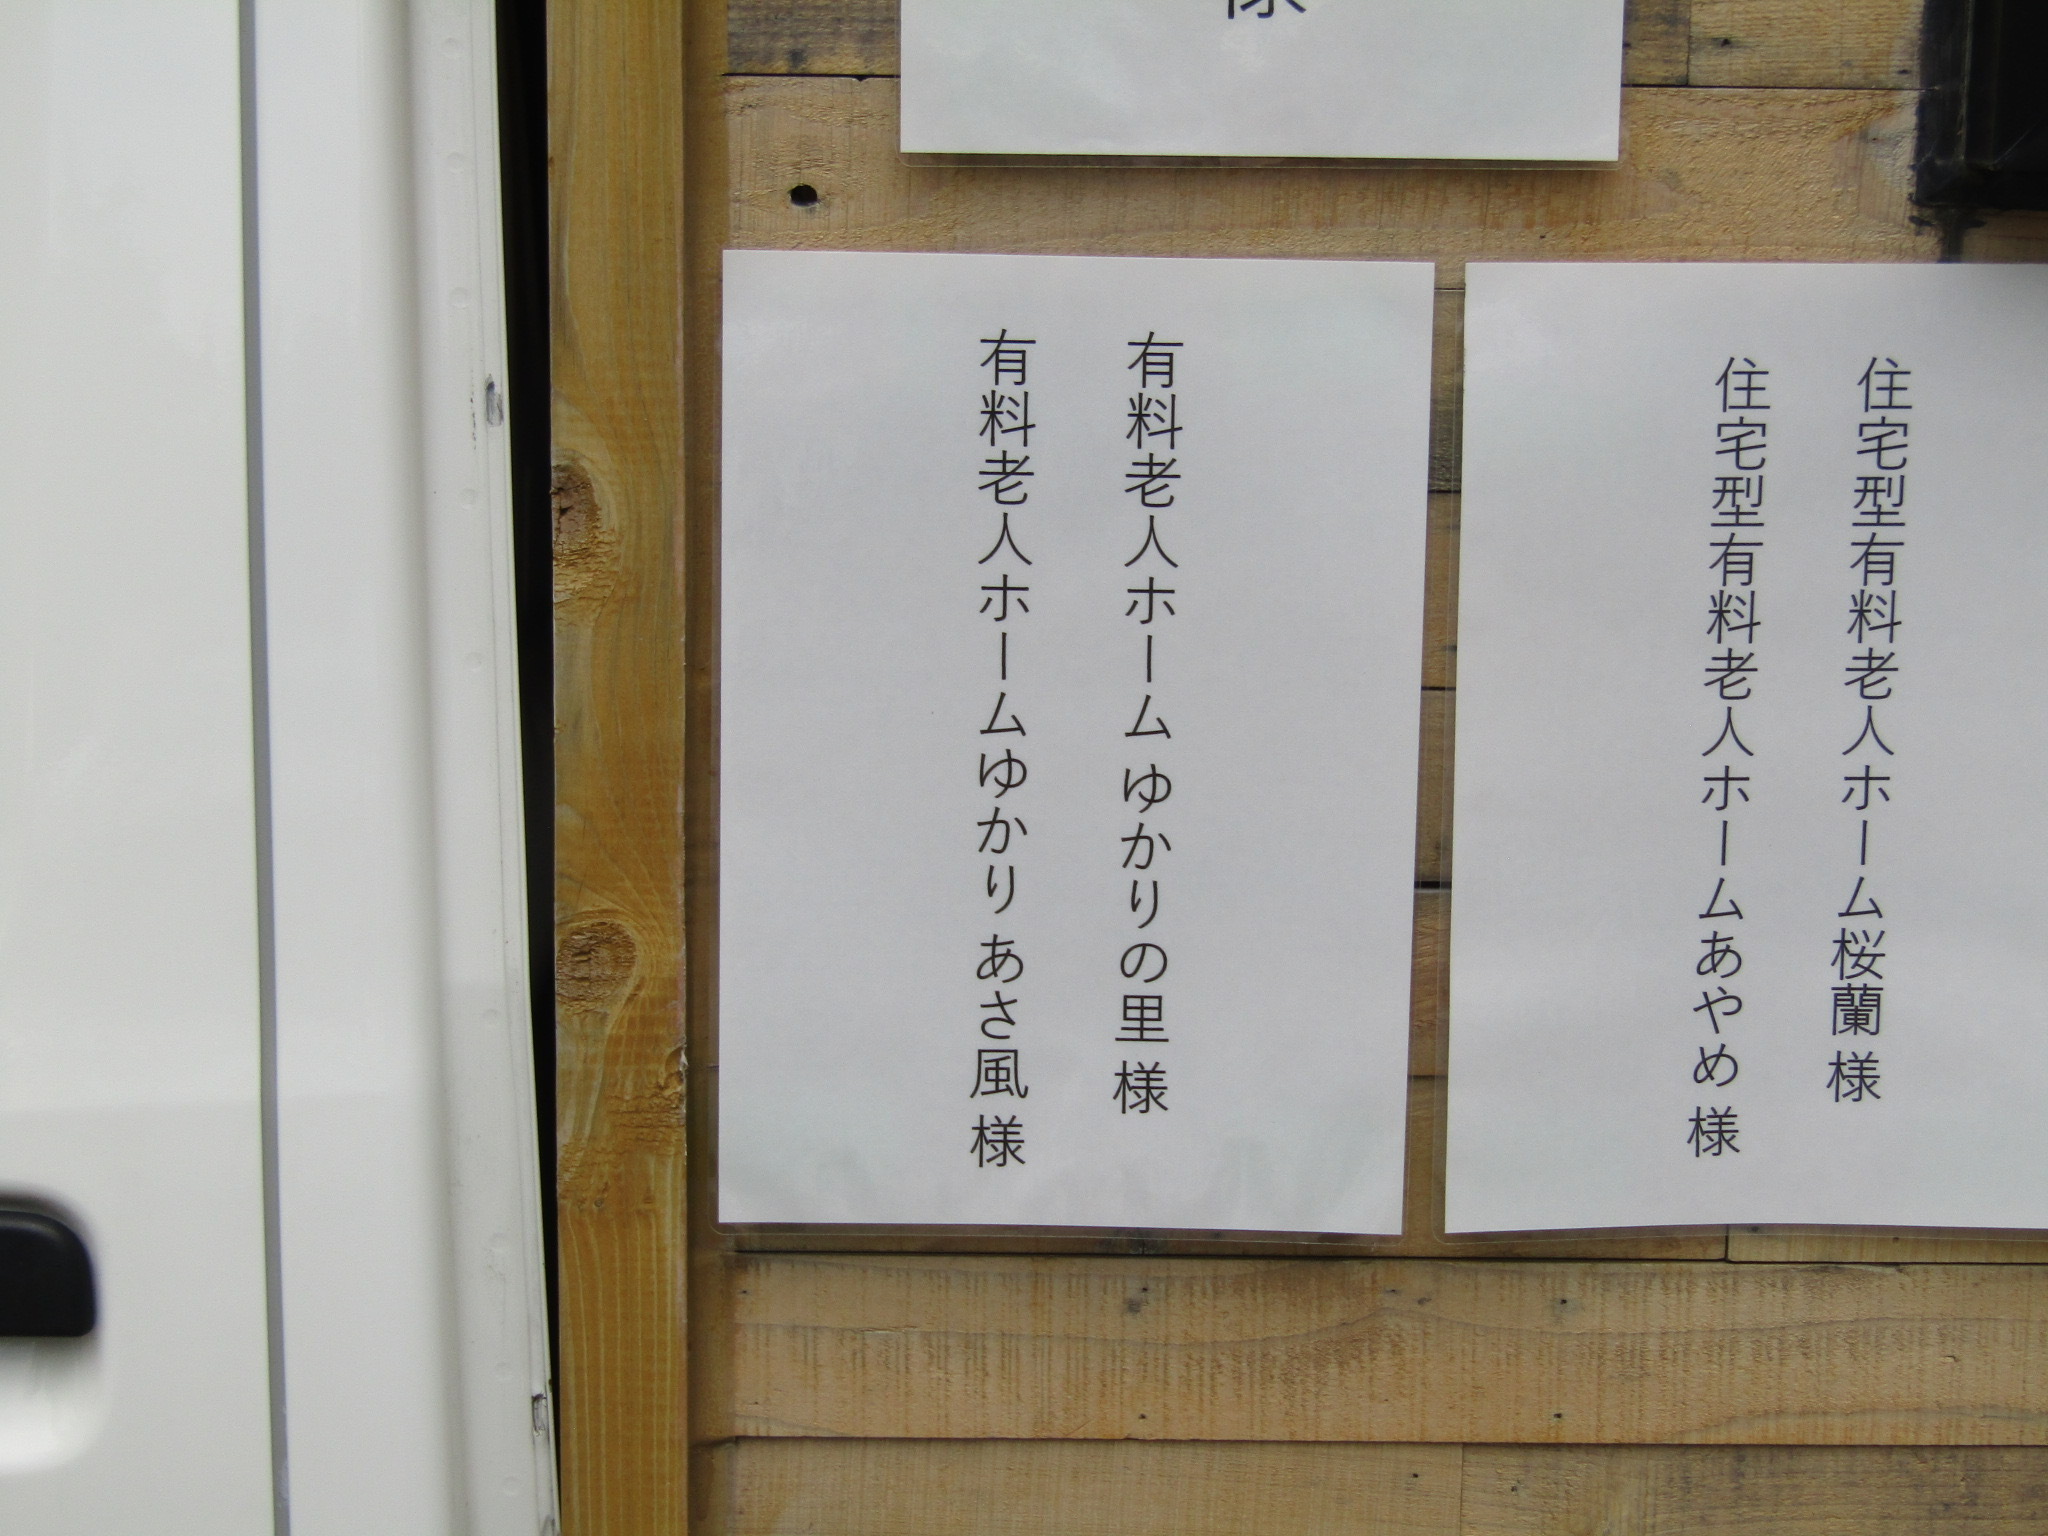 様
住宅型有料老人ホーム桜蘭 様
住宅型有料老人ホームあやめ 様
有料老人ホーム ゆかりの里 様
有料老人ホームゆかり あさ風 様